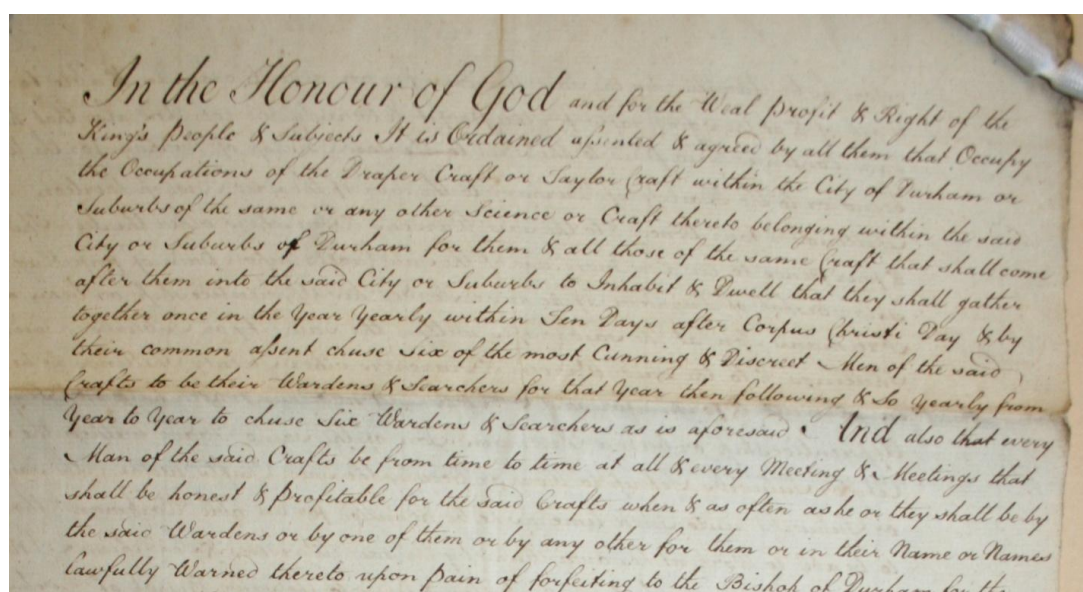 In the Honour of God and for the Weal Profit & Right of the
King's People & Subjects It is Ordained assented & agreed by all them that Occupy
the Occupations of the Draper Craft or Taylor Craft within the City of Durham or
Suburbs of the same or any other Science or Craft thereto belonging within the said
City or Suburbs of Durham for them & all those of the same Craft that shall come
after them into the said City or Suburbs to Inhabit & Dwell that they shall gather
together once in the Year Yearly within Ten Days after Corpus Christi Day & by
their common assent chuse six of the most Cunning & Discreet Men of the said
Crafts to be their Wardens & Searchers for that Year then following & So yearly from
Year to Year to chuse Six Wardens & Searchers as is aforesaid. And also that every
Man of the said Crafts be from time to time at all & every Meeting & Meetings that
shall be honest & profitable for the said Crafts when & as often as he or they shall be by
the said Wardens or by one of them or by any other for them or in their Name or Names
lawfully Warned thereto upon pain of forfeiting to the Bishop of Durham for the